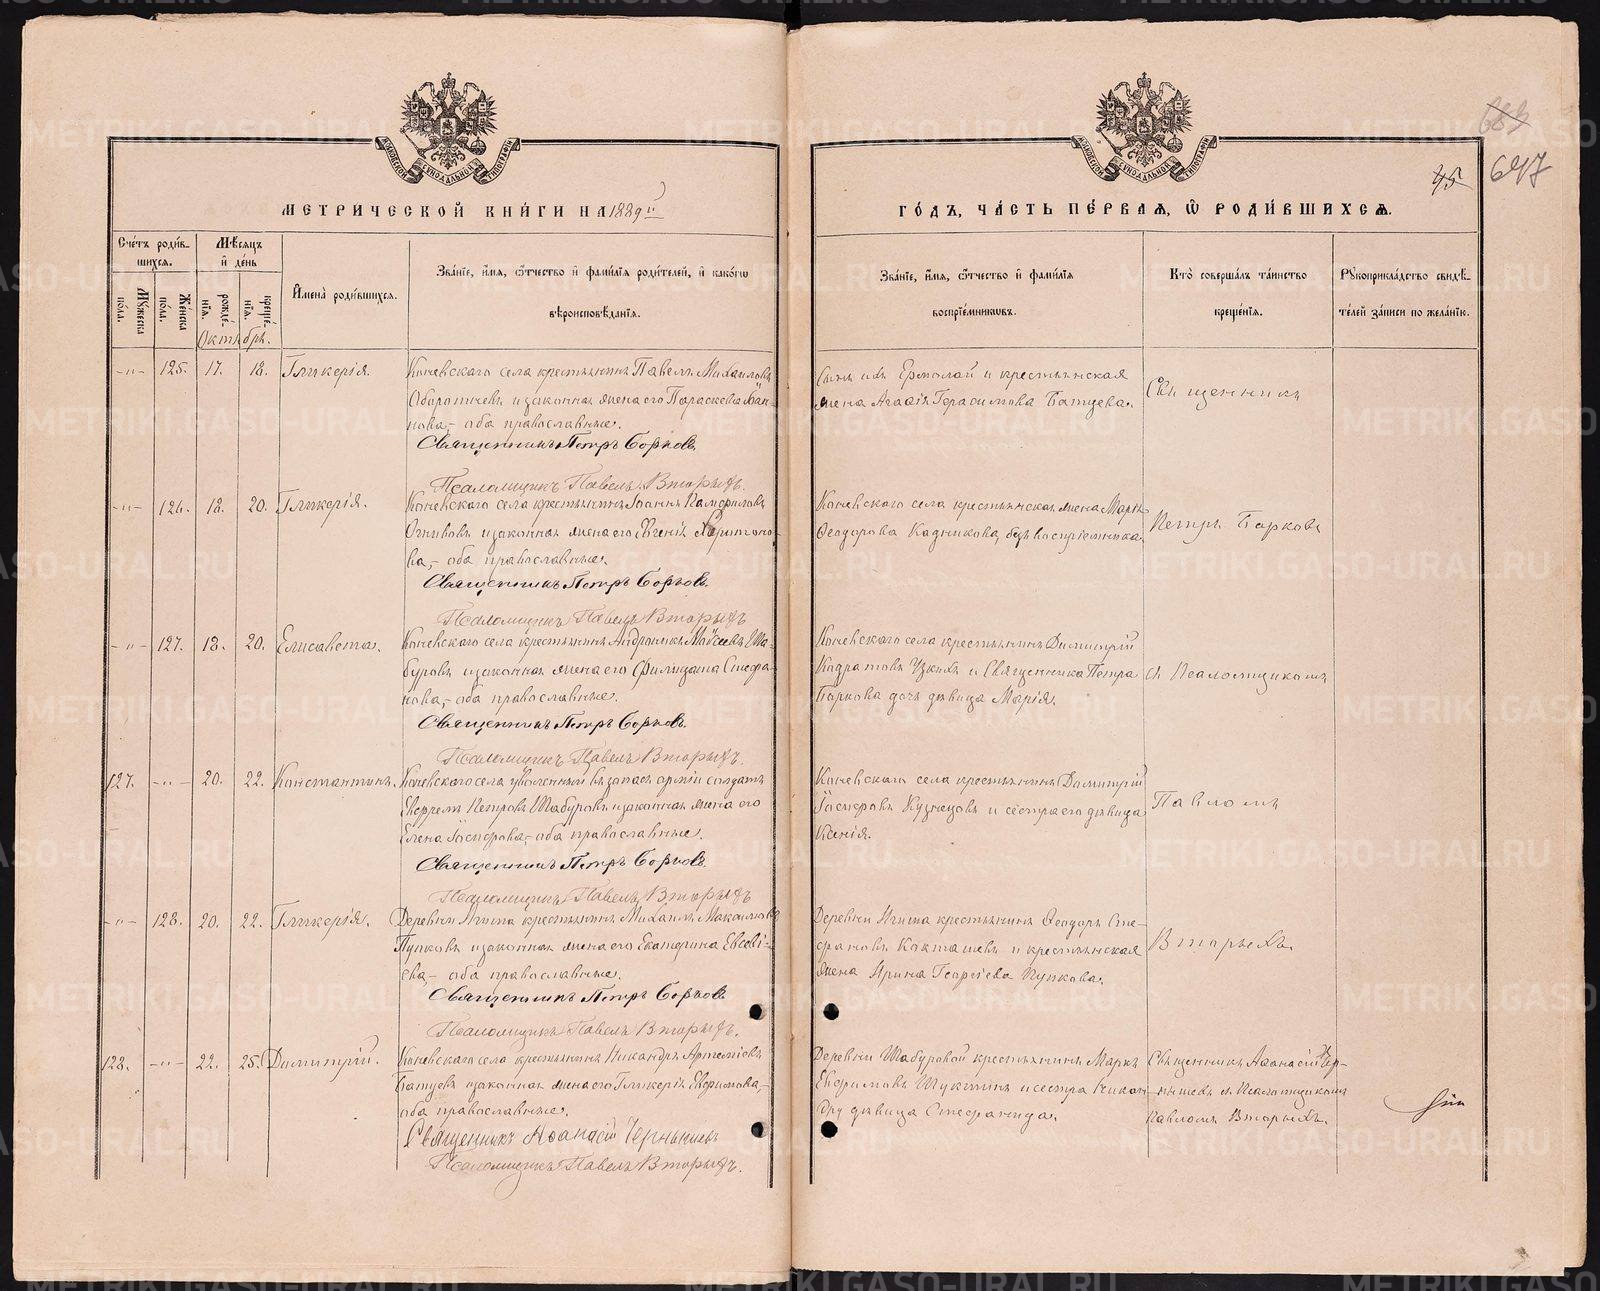 МЕТРИЧЕСКОЙ КНИГИ НА 1889й
Счетъ родившихся.
Мѣсяцъ и день
Имена родившихся.
Званіе, имя, отчество и фамилія родителей, и какого
вѣроисповѣданія.
Мужеска пола.
Женска пола.
рожденія.
крещенія.
Октябрь.
-"- 125. 17. 18. Гликерія.
Коневскаго села крестьянинъ Павелъ Михаиловъ
и законная жена его Параскева Іоан-
нова,- оба православные.
Священникъ Петръ Борковъ
Псаломщикъ Павелъ Вторыхъ.
-"- 126. 18. 20. Гликерія.
Коневскаго села крестьянинъ Іоаннъ
Огнивовъ и законная жена его Евгенія Харитоно-
ва,- оба православные.
Священникъ Петръ Борковъ
Псаломщикъ Павелъ Вторыхъ
-"- 127. 18. 20. Елисавета.
Коневскаго села крестьянинъ Андроникъ Моѵсеевъ Ша-
буровъ и законная жена его Филицата Стефа-
нова,- оба православные.
Священникъ Петръ Борковъ
Псаломщикъ Павелъ Вторыхъ.
127. -"- 20. 22. Константинъ.
Коневскаго села уволенный въ запасъ арміи солдатъ
Евфремъ Петровъ Шабуровъ и законная жена его
Елена Гасперова,- оба православные.
Священникъ Петръ Борковъ
Псаломщикъ Павелъ Вторыхъ
-"- 128. 20. 22. Гликерія.
Деревни Ичета крестьянинъ Михаилъ Максимовъ
Пупковъ и законная жена его Екатерина Евсеві-
ева,- оба православные.
Священникъ Петръ Борковъ
Псаломщикъ Павелъ Вторыхъ.
128. -"- 22. 25. Димитрій.
Коневскаго села крестьянинъ Никандръ Артеміевъ
Батуевъ и законная жена его Гликерія Евфимова,-
оба православные.
Священникъ Аѳанасій Чернышевъ
Псаломщикъ Павелъ Вторыхъ.
ГОДЪ, ЧАСТЬ ПЕРВАЯ, Ѡ РОДИВШИХСЯ.
45
647
Званіе, имя, отчество и фамилія
воспріемниковъ.
Кто совершалъ таинство
крещенія.
Рукоприкладство свидѣ-
телей записи по желанію.
Сынъ ихъ Ермолай и крестьянская
жена Агаѳія Герасимова Батуева.
Священникъ
Коневскаго села крестьянская жена Марія
Ѳеодорова Кадникова, безъ воспріемника.
Петръ Борковъ
Коневскаго села крестьянинъ Димитрій
Кодратовъ Узкихъ и Священника Петра
Боркова дочь дѣвица Марія.
съ Псаломщикомъ
Коневскаго села крестьянинъ Димитрій
Гасперовъ Кузнецовъ и сестра его дѣвица
Ксенія.
Павломъ
Деревни Ичета крестьянинъ Ѳеодоръ Сте-
фановъ Кокташевъ и крестьянская
жена Ирина Георгіева Пупкова.
Вторыхъ.
Деревни Шабуровой крестьянинъ Маркъ
Евфимовъ Шукшинъ и сестра Никан-
дру дѣвица Стефанида.
Священникъ Аѳанасій Чер-
нышевъ съ Псаломщикомъ
Павломъ Вторыхъ.
METRIKI.GASO-URAL.RU